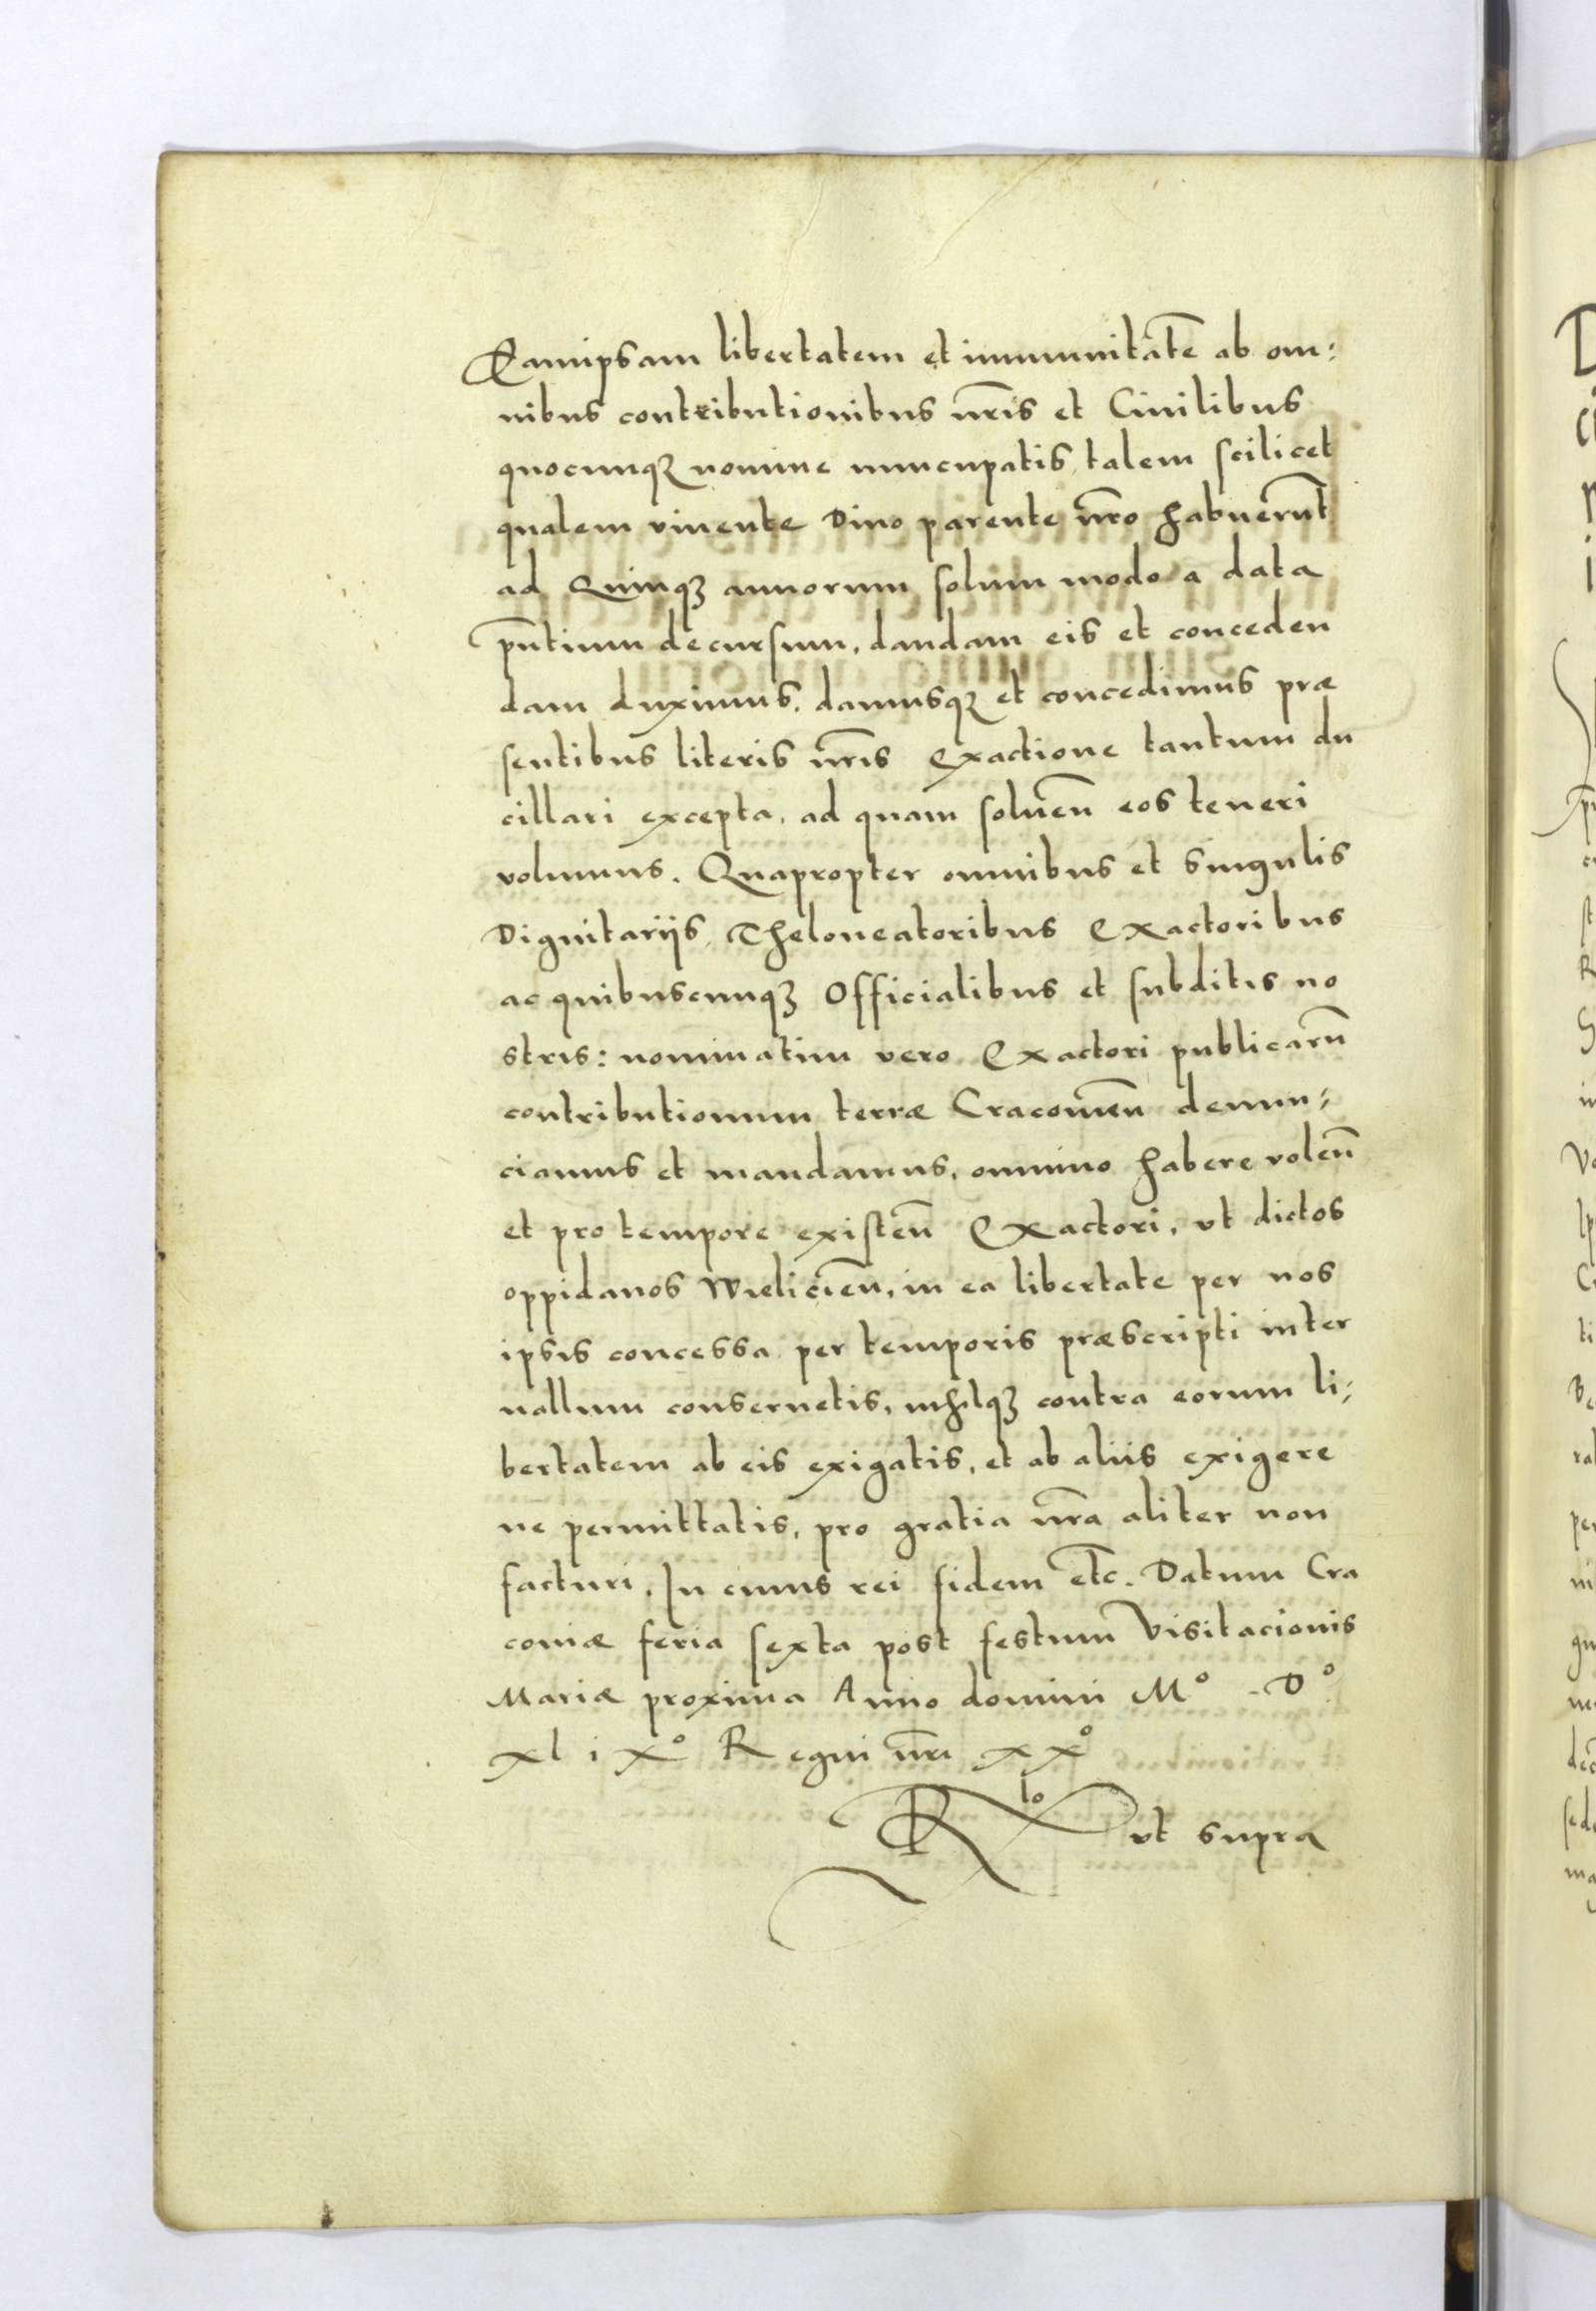 Eamipsam libertatem et immunitatẽ ab om:
nibus contributionibus nr̃is et Ciuilibus
quocunqꝫ nomine nuncupatis, talem scilicet
qualem viuente Diuo parente nr̃o habuerũt
ad Quinqꝫ annorum solum modo a data
pñtium decursum, dandam eis et conceden
dam duximus, damusqꝫ et concedimus præ
sentibus literis nr̃is Exactione tantum du
cillari excepta, ad quam soluen̄ eos teneri
volumus. Quapropter omnibus et singulis
Dignitarijs, Theloneatoribus Exactoribus
ac quibuscunqꝫ Officialibus et subditis no
stris: nominatim vero Exactori publicarũ
contributionum terræ Cracouien̄ denun:
ciamus et mandamus, omnino habere volen̄
et pro tempore existen̄ Exactori, vt dictos
oppidanos Wielicien̄, in ea libertate per nos
ipsis concessa per temporis præscripti inter
uallum conseruetis, nihilqꝫ contra eorum li:
bertatem ab eis exigatis, et ab aliis exigere
ne permittatis, pro gratia nr̃a aliter non
facturi. In cuius rei fidem etc̃. Datum Cra
couiæ feria sexta post festum Visitacionis
Mariæ proxima Anno domini M° . D°
xlix° Regni nr̃i xx°
Rlo vt supra